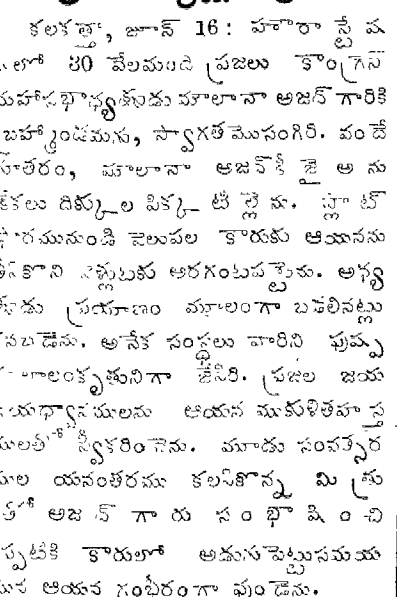 కలకత్తా, జూన్ 16: హౌరా స్టేష
లో 80 వేలమంది ప్రజలు కాంగ్రెస్
మహాసభాధ్యక్షుడు మౌలానా అజాద్ గారికి
బహ్మాండమను, స్వాగత మొసంగిరి. వందే
మాతరం, మౌలానా అజాద్‌కీ జై అను
కేకలు దిక్కుల పిక్కటిల్లెను. ప్లాట్
ఫారమునుండి వెలుపల కారుకు ఆయనను
తీసుకొని వెళ్లుటకు అరగంటపట్టెను. అధ్య
క్షుడు ప్రయాణం మూలంగా బడలినట్లు
కనబడెను. అనేక సంస్థలు వారిని పుష్ప
మాలాంకృతునిగా జేసిరి. ప్రజల జయ
జయధ్వానములను ఆయన ముకుళితహస్త
ములతో స్వీకరించెను. మూడు సంవత్సర
ముల యనంతరము కలసికొన్న మిత్రు
లతో అజాద్ గారు సంభాషించి
నప్పటికి కారులో అడుగుపెట్టుసమయ
మున ఆయన గంభీరంగా వుండెను.